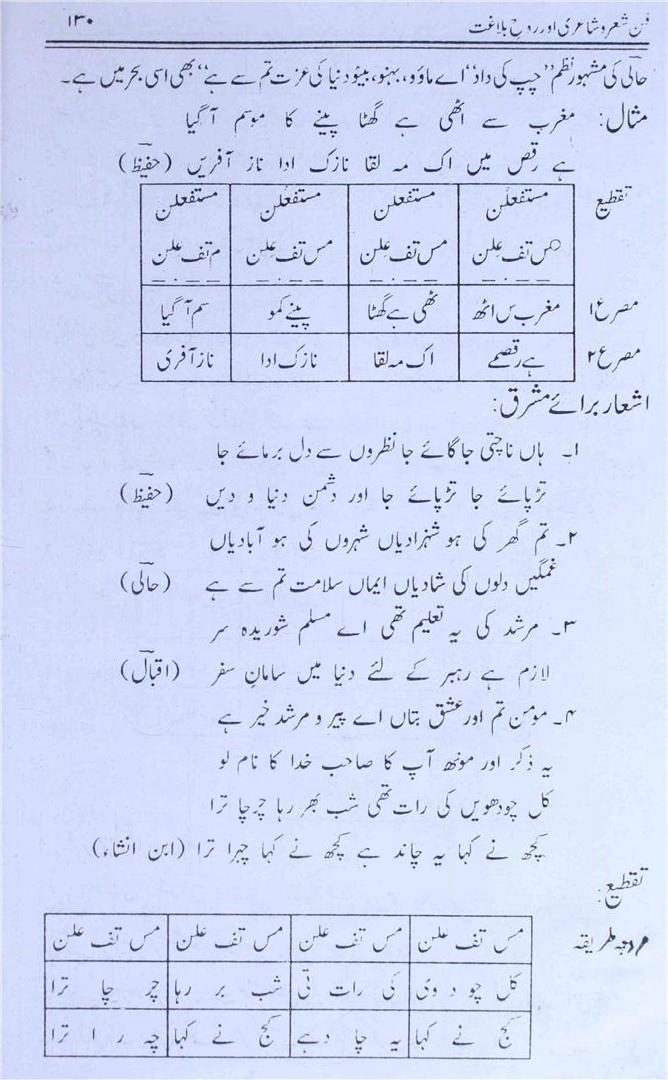 فنِ شعر و شاعری اور روحِ بلاغت ۱۳۰
حالی کی مشہور نظم ”چپ کی داد“ اے ماؤو، بہنو، بیٹیو دنیا کی عزت تم سے ہے“ بھی اسی بحر میں ہے۔
مثال: مغرب سے اٹھی ہے گھٹا پینے کا موسم آ گیا
ہے رقص میں اک مہ لقا نازک ادا ناز آفریں (حفیظ)
تقطیع مستفعلن مستفعلن مستفعلن مستفعلن
مس تف علن مس تف علن مس تف علن م تف علن
مصرع ۱ مغرب س اٹھ ٹھی ہے گھٹا پینے کمو سم آ گیا
مصرع ۲ ہے رقصمے اک مہ لقا نازک ادا ناز آفری
اشعار برائے مشرق:
۱۔ ہاں ناچتی جا گائے جا نظروں سے دل برمائے جا
تڑپائے جا تڑپائے جا اور دشمن دنیا و دیں (حفیظ)
۲۔ تم گھر کی ہو شہزادیاں شہروں کی ہو آبادیاں
غمگیں دلوں کی شادیاں ایماں سلامت تم سے ہے (حالی)
۳۔ مرشد کی یہ تعلیم تھی اے مسلم شوریدہ سر
لازم ہے رہبر کے لئے دنیا میں سامانِ سفر (اقبال)
۴۔ مومن تم اور عشق بتاں اے پیر و مرشد خیر ہے
یہ ذکر اور مونھ آپ کا صاحب خدا کا نام لو
کل چودھویں کی رات تھی شب بھر رہا چرچا ترا
کچھ نے کہا یہ چاند ہے کچھ نے کہا چہرا ترا (ابن انشاء)
تقطیع:
مروجہ طریقہ مس تف علن مس تف علن مس تف علن مس تف علن
کل چو د وی کی رات تی شب بر رہا چر چا ترا
کچ نے کہا یہ چا دہے کچ نے کہا چہ را ترا